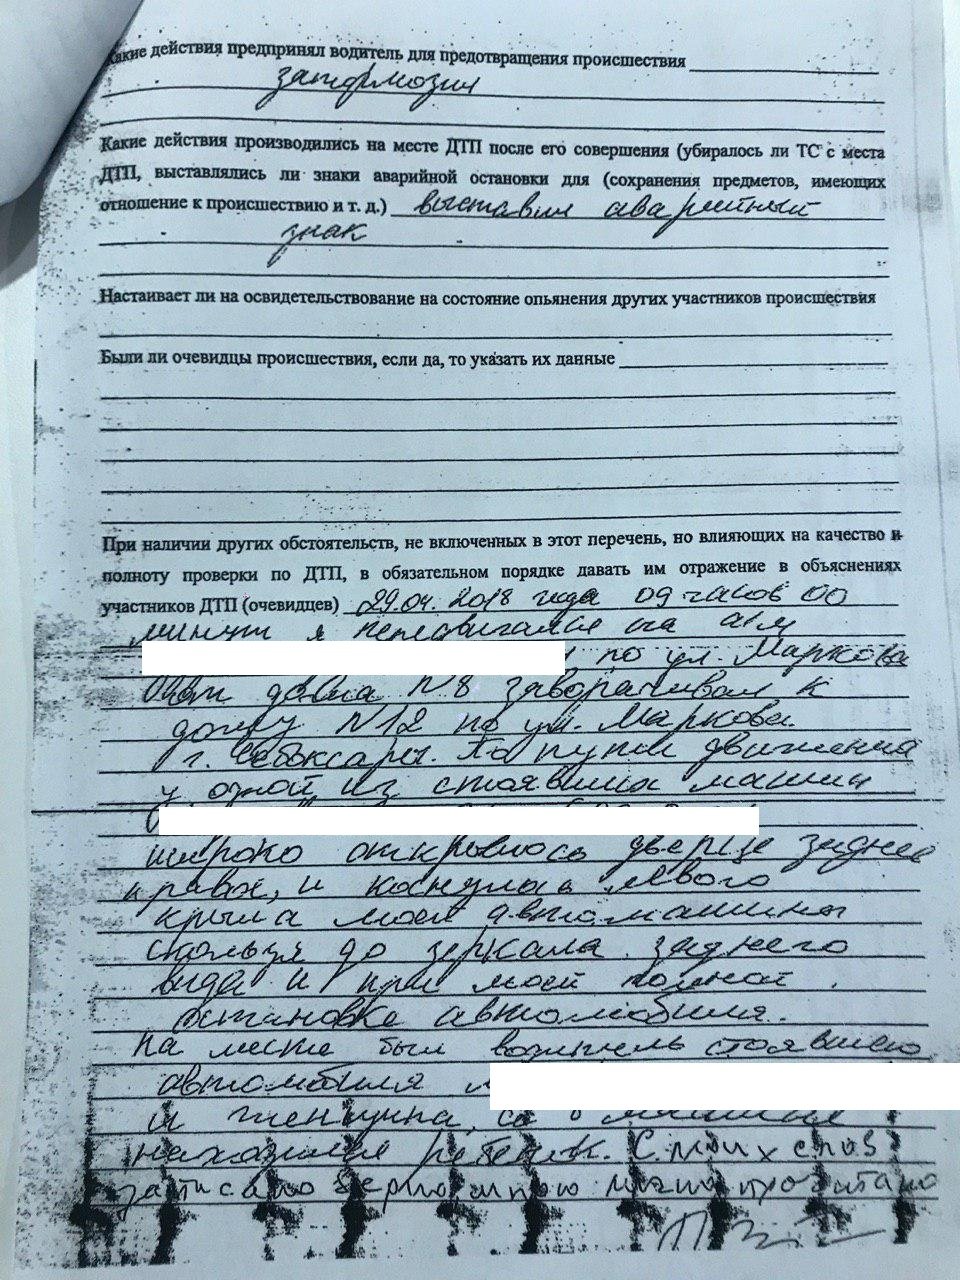 Какие действия предпринял водитель для предотвращения происшествия
затормозил
Какие действия производились на месте ДТП после его совершения (убиралось ли ТС с места
ДТП, выставлялись ли знаки аварийной остановки для (сохранения предметов, имеющих
отношение к происшествию и т. д.) выставил аварийный
знак
Настаивает ли на освидетельствование на состояние опьянения других участников происшествия
Были ли очевидцы происшествия, если да, то указать их данные
При наличии других обстоятельств, не включенных в этот перечень, но влияющих на качество и
полноту проверки по ДТП, в обязательном порядке давать им отражение в объяснениях
участников ДТП (очевидцев) 29.04.2018 года 09 часов 00
минут я передвигался на а/м
, по ул. Маркова
дома №8 заворачивал к
дому №12 по ул. Маркова
г. Чебоксары. По пути движения
у одной из стоявших машин
широко открылось дверце заднее
правое, и коснулась левого
крыла моей автомашины
скользя до зеркала заднего
вида и при моей полной
остановке автомобиля.
На месте был водитель стоявшего
автомобиля
и женщина,
находился ребенок. С моих слов
записано верно мною прочитано